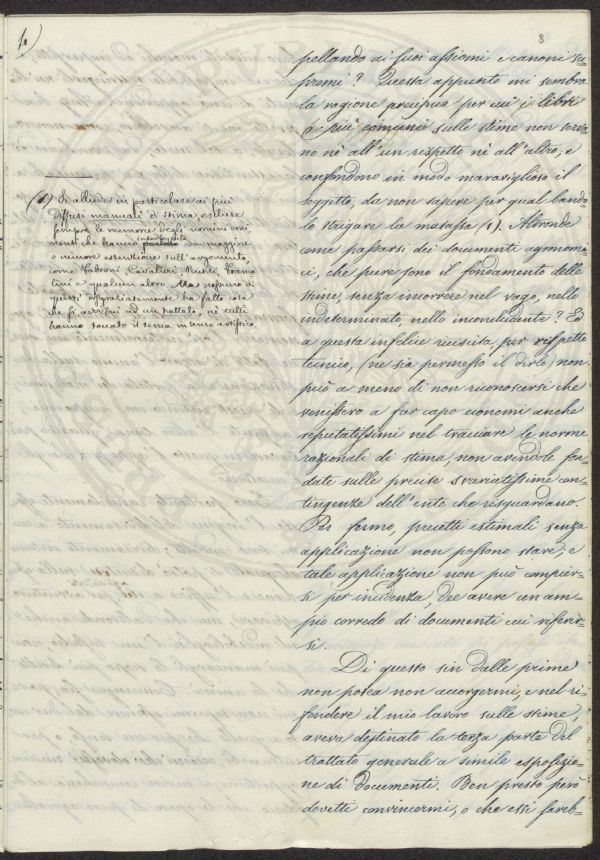 8
pellando ai suoi assiomi e canoni su-
premi? Questa appunto mi sembra
la ragione precipua per cui i libri
più comuni sulle stime non serva
no nè all'un rispetto nè all'altro, e
confondono in modo maraviglioso il
soggetto, da non sapere per qual bando-
lo strigare la matassa (1). Altronde
come passarsi dei documenti agronomi-
ci, che pure sono il fondamento delle
stime, senza incorrere nel vago, nello
indeterminato, nello inconcludente? Ed
a questa infelice riuscita, per rispetto
tecnico, (ne sia permesso il dirlo) non
può a meno di non riconoscersi che
venissero a far capo economi anche
reputatissimi nel tracciare le norme
razionali di stima, non avendole fon-
date sulle precise svariatissime con-
tingenze dell'ente che risguardano.
Per fermo, precetti estimali senza
applicazione non possono stare; e
tale applicazione non può compier-
si per incidenza, dee avere un am-
pio corredo di documenti cui riferir-
si.
Di questo sin dalle prime
non potea non accorgermi, e nel ri-
fondere il mio lavoro sulle stime,
aveva destinato la terza parte del
trattato generale a simile esposizio-
ne di documenti. Ben presto però
dovetti convincermi, o che essi sareb-
(1) Si allude in particolare ai più
diffusi manuali di stima, escluse
sempre le memorie degli uomini emi
nenti che hanno con maggiore
o minore estensione sull'argomento,
come Fabroni Cavalieri
lini e qualcun altro. Ma nessuno di
questi disgraziatamente ha fatto cosa
che si avvicini ad un trattato, nè tutti
hanno toccato il tema in senso artistico.